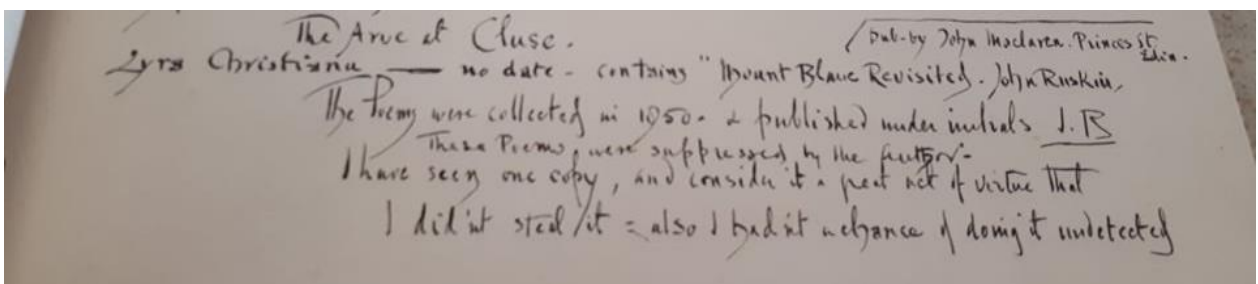 The Arve at Cluse.
Pub-by John Maclaren. Princes St. Edin.
Lyra Christiana — no date - contains "Mount Blanc Revisited. John Ruskin,
The Poems were collected in 1850. & published under initials J. R
These Poems, were suppressed by the Author-
I have seen one copy, and consider it a great act of virtue that
I did'nt steal it = also I had'nt a chance of doing it undetected